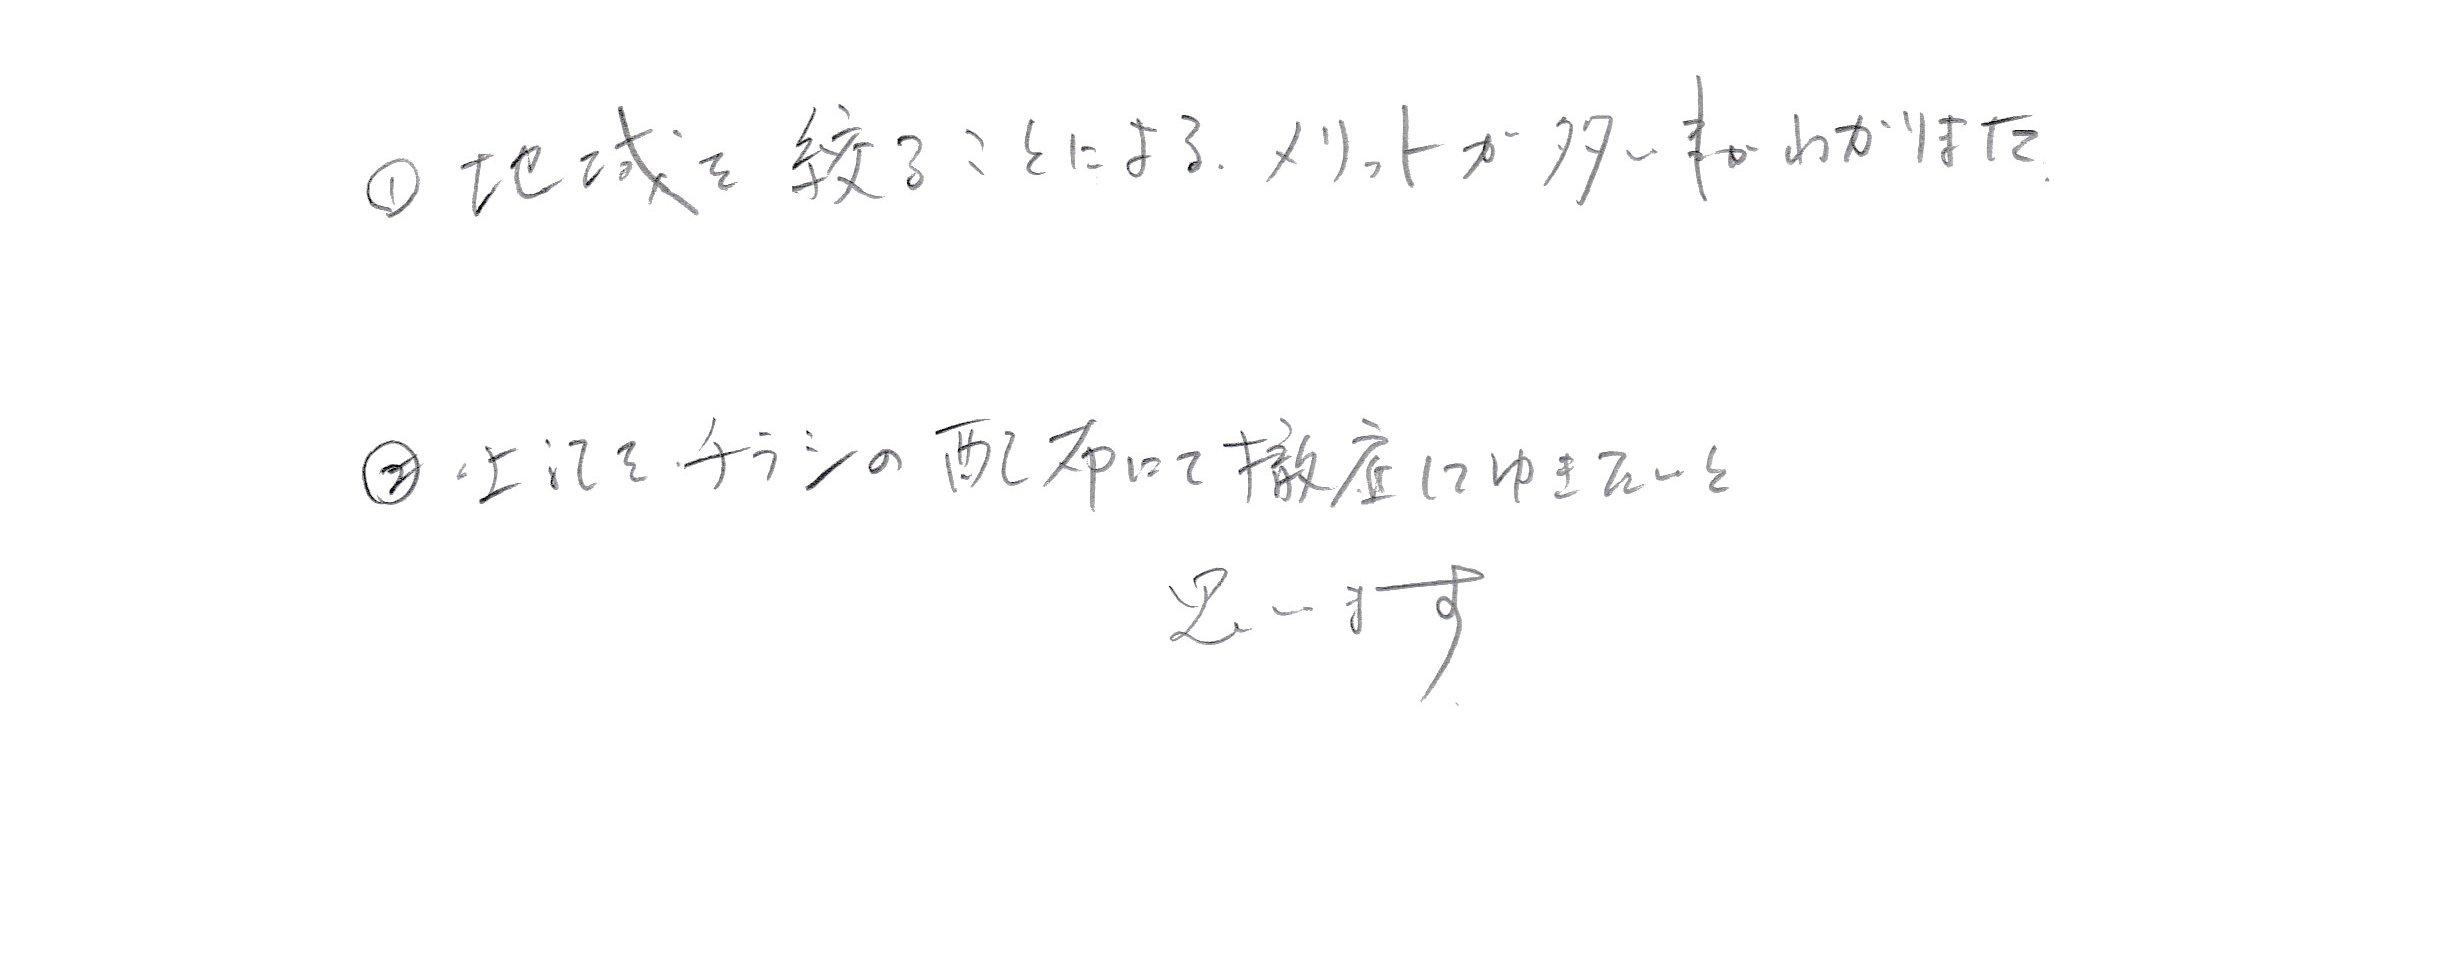 ①地域を絞ることによる.メリットが多い事がわかりました.
②上記をチラシの配布にて徹底してゆきたいと
思います